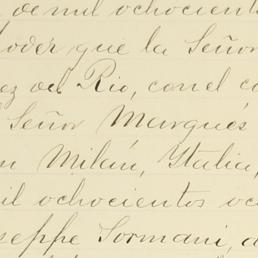 de mil ochocient
oder que la Señor
ez del Rio, con el c
Señor Marqués
n Milán, Italia,
il ochocientos oc
seppe Sormani, a